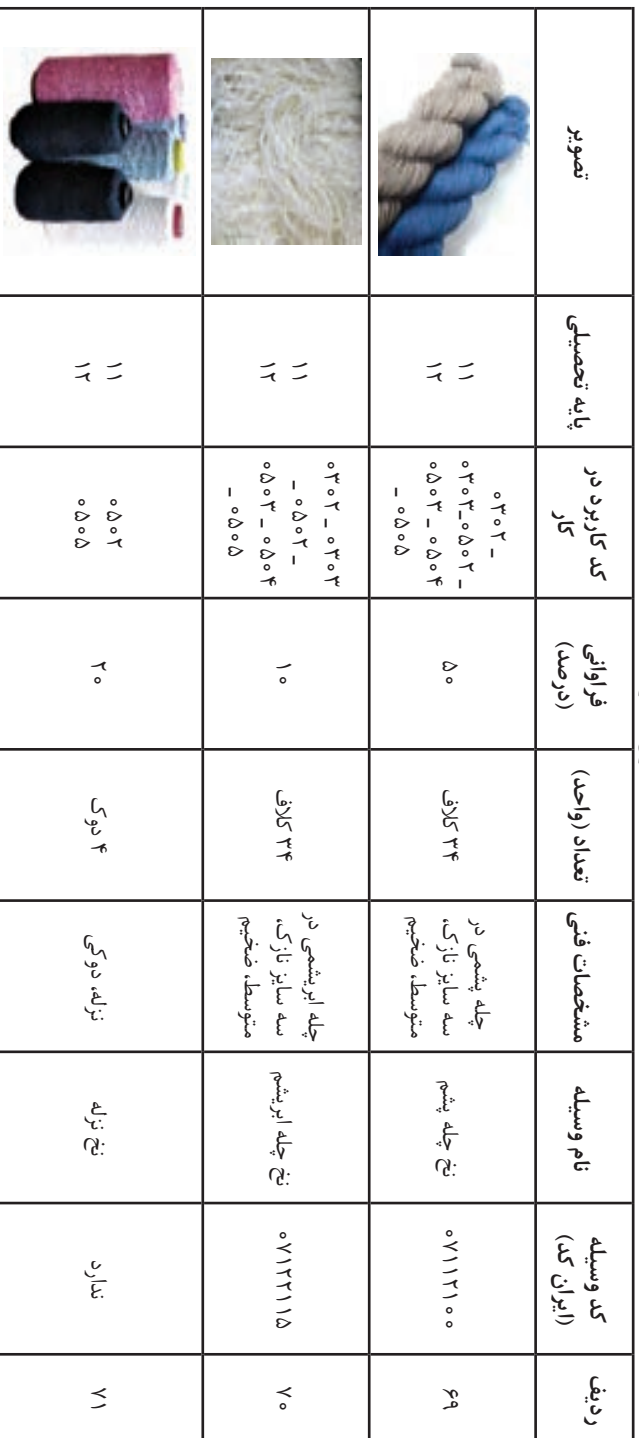 ردیف
کد وسیله
(ایران کد)
نام وسیله
مشخصات فنی
تعداد (واحد)
فراوانی
(درصد)
کد کاربرد در
کار
پایه تحصیلی
تصویر
۶۹
۰۷۱۱۲۱۰۰
نخ چله پشم
چله پشمی در
سه سایز نازک،
متوسط، ضخیم
۳۴ کلاف
۵۰
۰۳۰۲ -
۰۳۰۳-۰۵۰۲ -
۰۵۰۳ - ۰۵۰۴
- ۰۵۰۵
۱۱
۱۲
۷۰
۰۷۱۲۲۱۱۵
نخ چله ابریشم
چله ابریشمی در
سه سایز نازک،
متوسط، ضخیم
۳۴ کلاف
۱۰
۰۳۰۲ - ۰۳۰۳
- ۰۵۰۲ -
۰۵۰۳ - ۰۵۰۴
- ۰۵۰۵
۱۱
۱۲
۷۱
ندارد
نخ نزله
نزله، دوکی
۴ دوک
۲۰
۰۵۰۲
۰۵۰۵
۱۱
۱۲